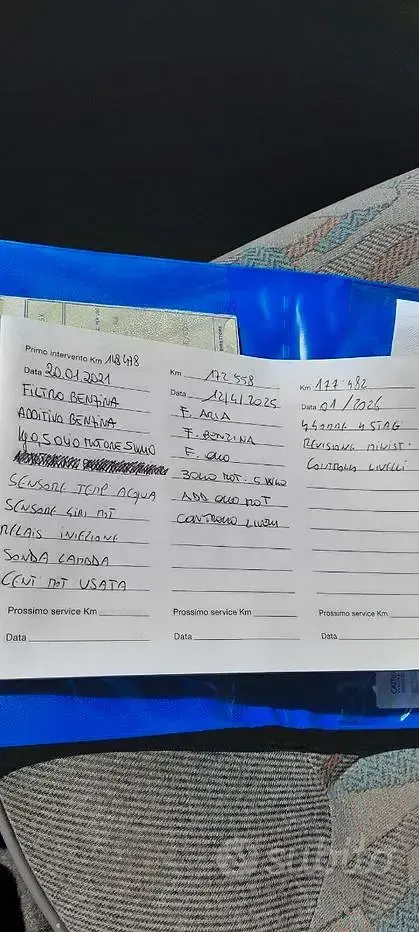 Primo intervento Km 148478
Data 20.01.2021
FILTRO BENZINA
ADDITIVO BENZINA
OLIO MOTORE 5W40
SENSORE TEMP ACQUA
SENSORE GIRI MOT
RELAIS INIEZIONE
SONDA LAMBDA
CENT MOT USATA
Prossimo service Km
Data
Km 172 558
Data 12/4/2025
F. ARIA
F. BENZINA
F. OLIO
OLIO MOT. 5W40
ADD OLIO MOT
CONTROLLO LIVELLI
Prossimo service Km
Data
Km 177 482
Data 01/2026
4 GOMME 4 STAG
REVISIONE MINIST.
CONTROLLO LIVELLI
Prossimo service Km
Data
subito